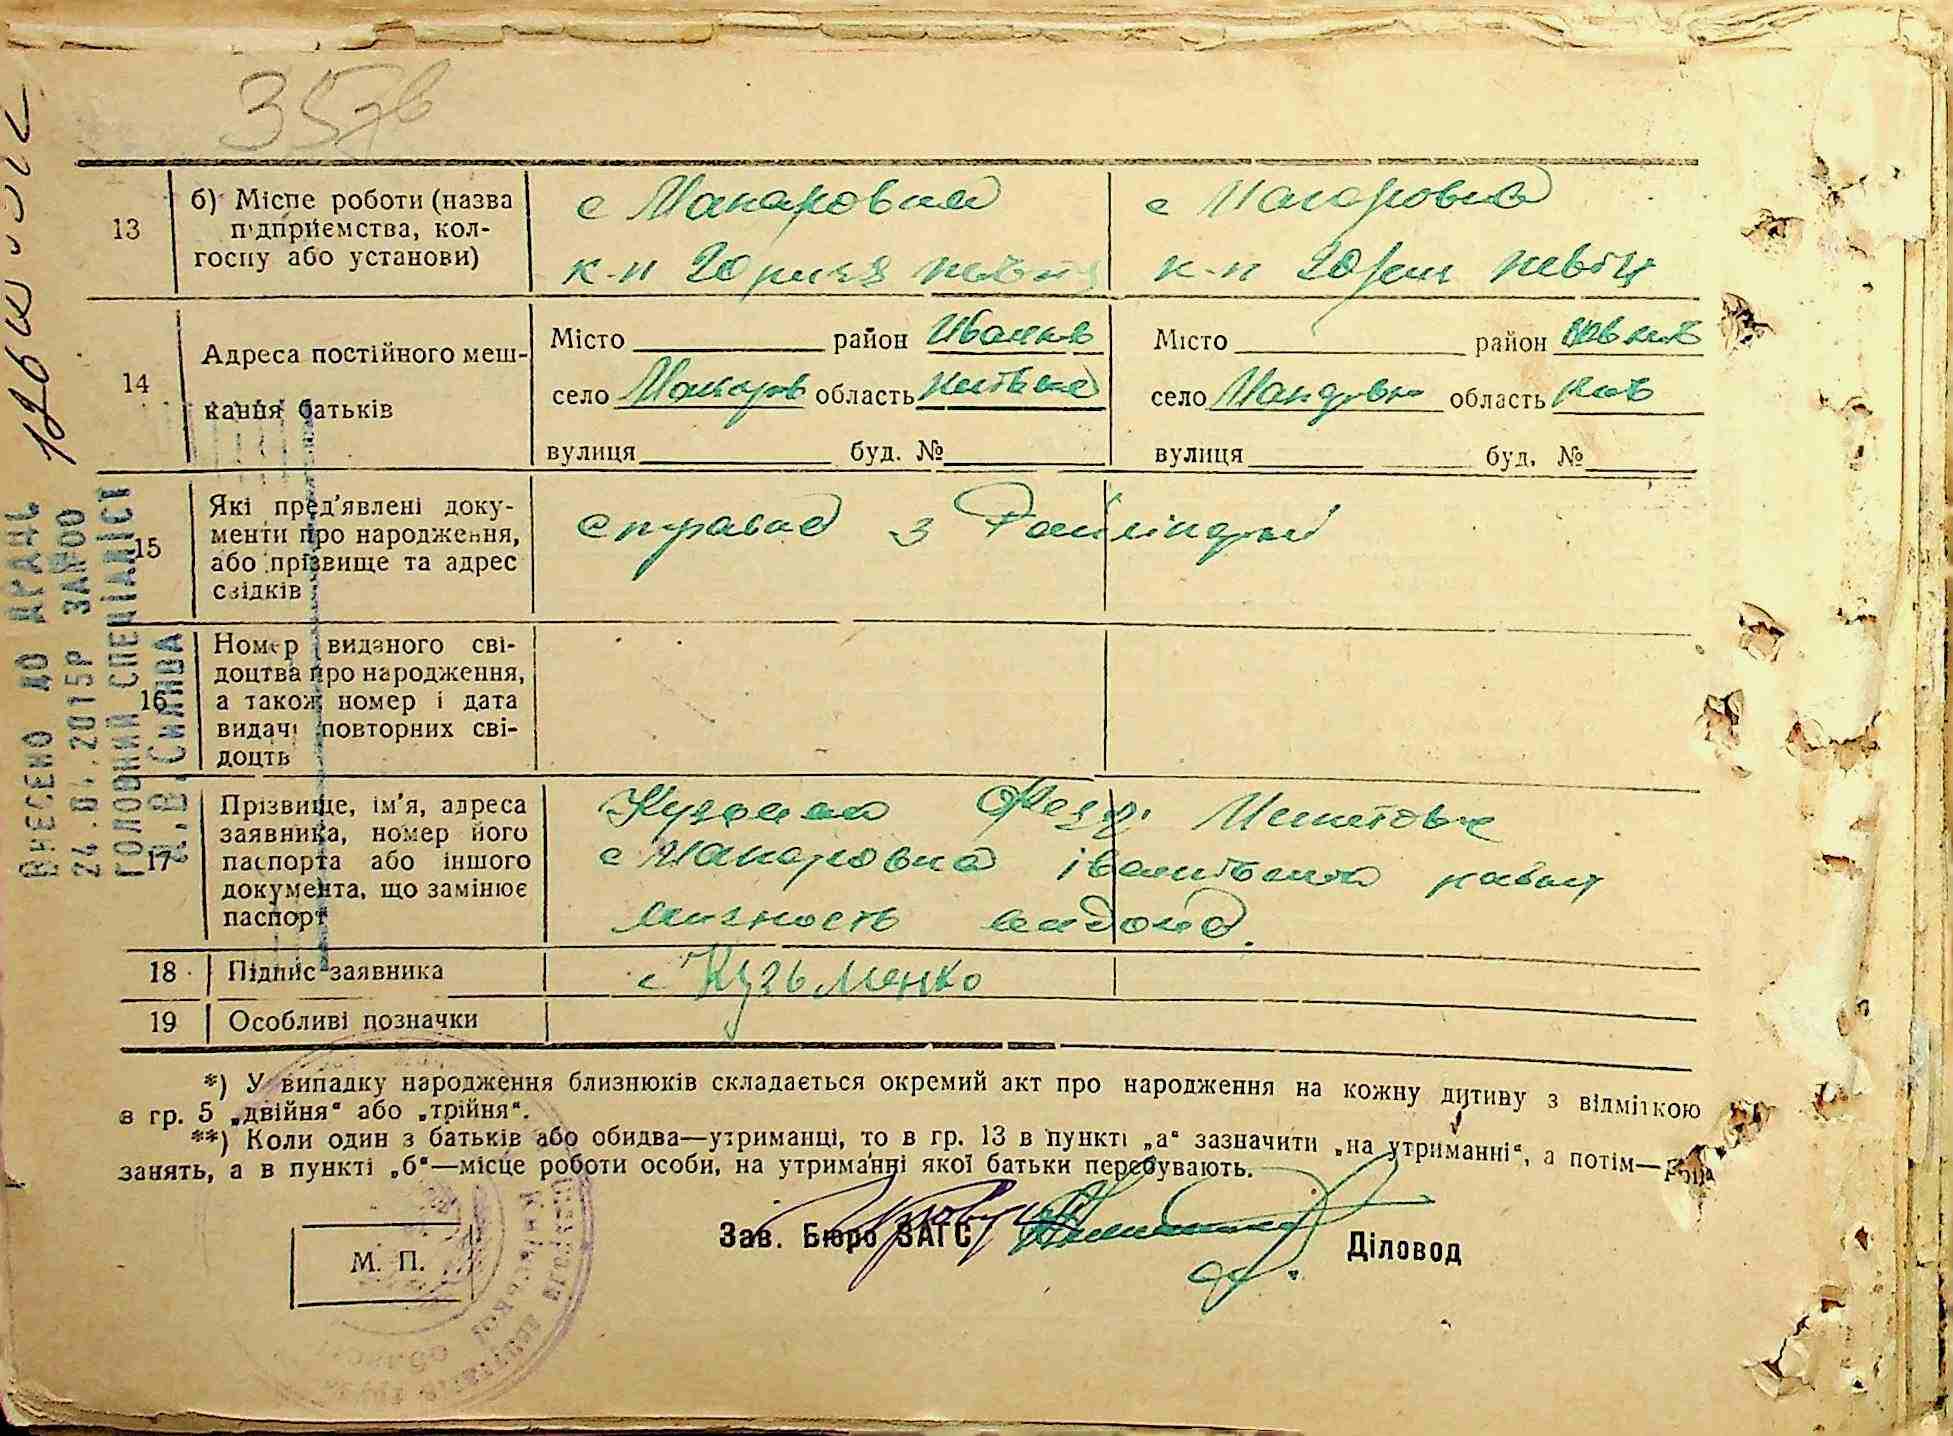 357в
13
б) Місце роботи (назва
підприємства, кол-
госпу або установи)
с Макаровка
к-п 20 річчя жовтня
с Макаровка
к-п 20 річ жовтн
14
Адреса постійного меш-
кання батьків
Місто район Іванків
село Макарів область Київська
вулиця буд. №
Місто район
село Макарівк область Київ
вулиця буд. №
15
Які пред'явлені доку-
менти про народження,
або прізвище та адрес
свідків
справка з Райлікарні
16
Номер виданого сві-
доцтва про народження,
а також номер і дата
видачі повторних сві-
доцтв
17
Прізвище, ім'я, адреса
заявника, номер його
паспорта або іншого
документа, що замінює
паспорт
с Макаровка Іванківського
личность
18
Підпис заявника
Кузьменко
19
Особливі позначки
*) У випадку народження близнюків складається окремий акт про народження на кожну дитину з відміткою
в гр. 5 „двійня“ або „трійня“.
**) Коли один з батьків або обидва—утриманці, то в гр. 13 в пункті „а“ зазначити „на утриманні“, а потім—рід
занять, а в пункті „б“—місце роботи особи, на утриманні якої батьки перебувають.
М. П.
Зав. Бюро ЗАГС
Діловод
ВНЕСЕНО ДО ДРАЦЬ
24.04.2015Р
ГОЛОВНИЙ СПЕЦІАЛІСТ